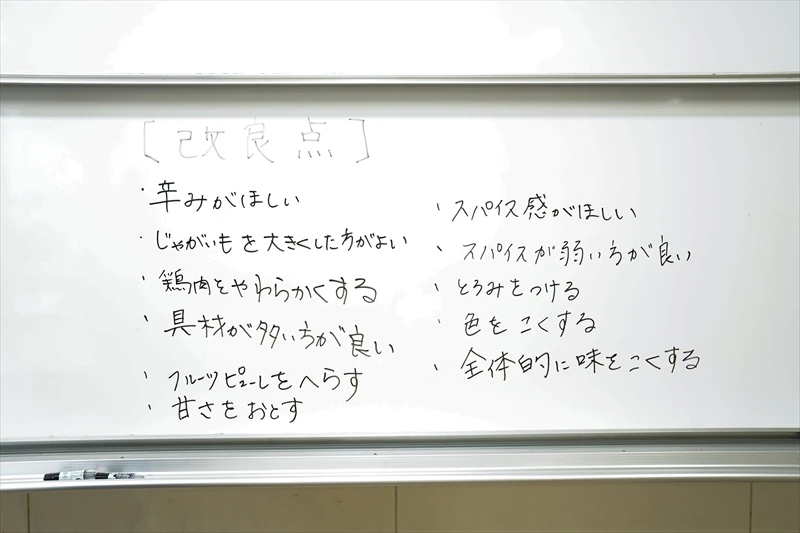 [改良点]
・辛みがほしい
・じゃがいもを大きくした方がよい
・鶏肉をやわらかくする
・具材が多い方が良い
・フルーツピューレをへらす
・甘さをおとす
・スパイス感がほしい
・スパイスが弱い方が良い
・とろみをつける
・色をこくする
・全体的に味をこくする